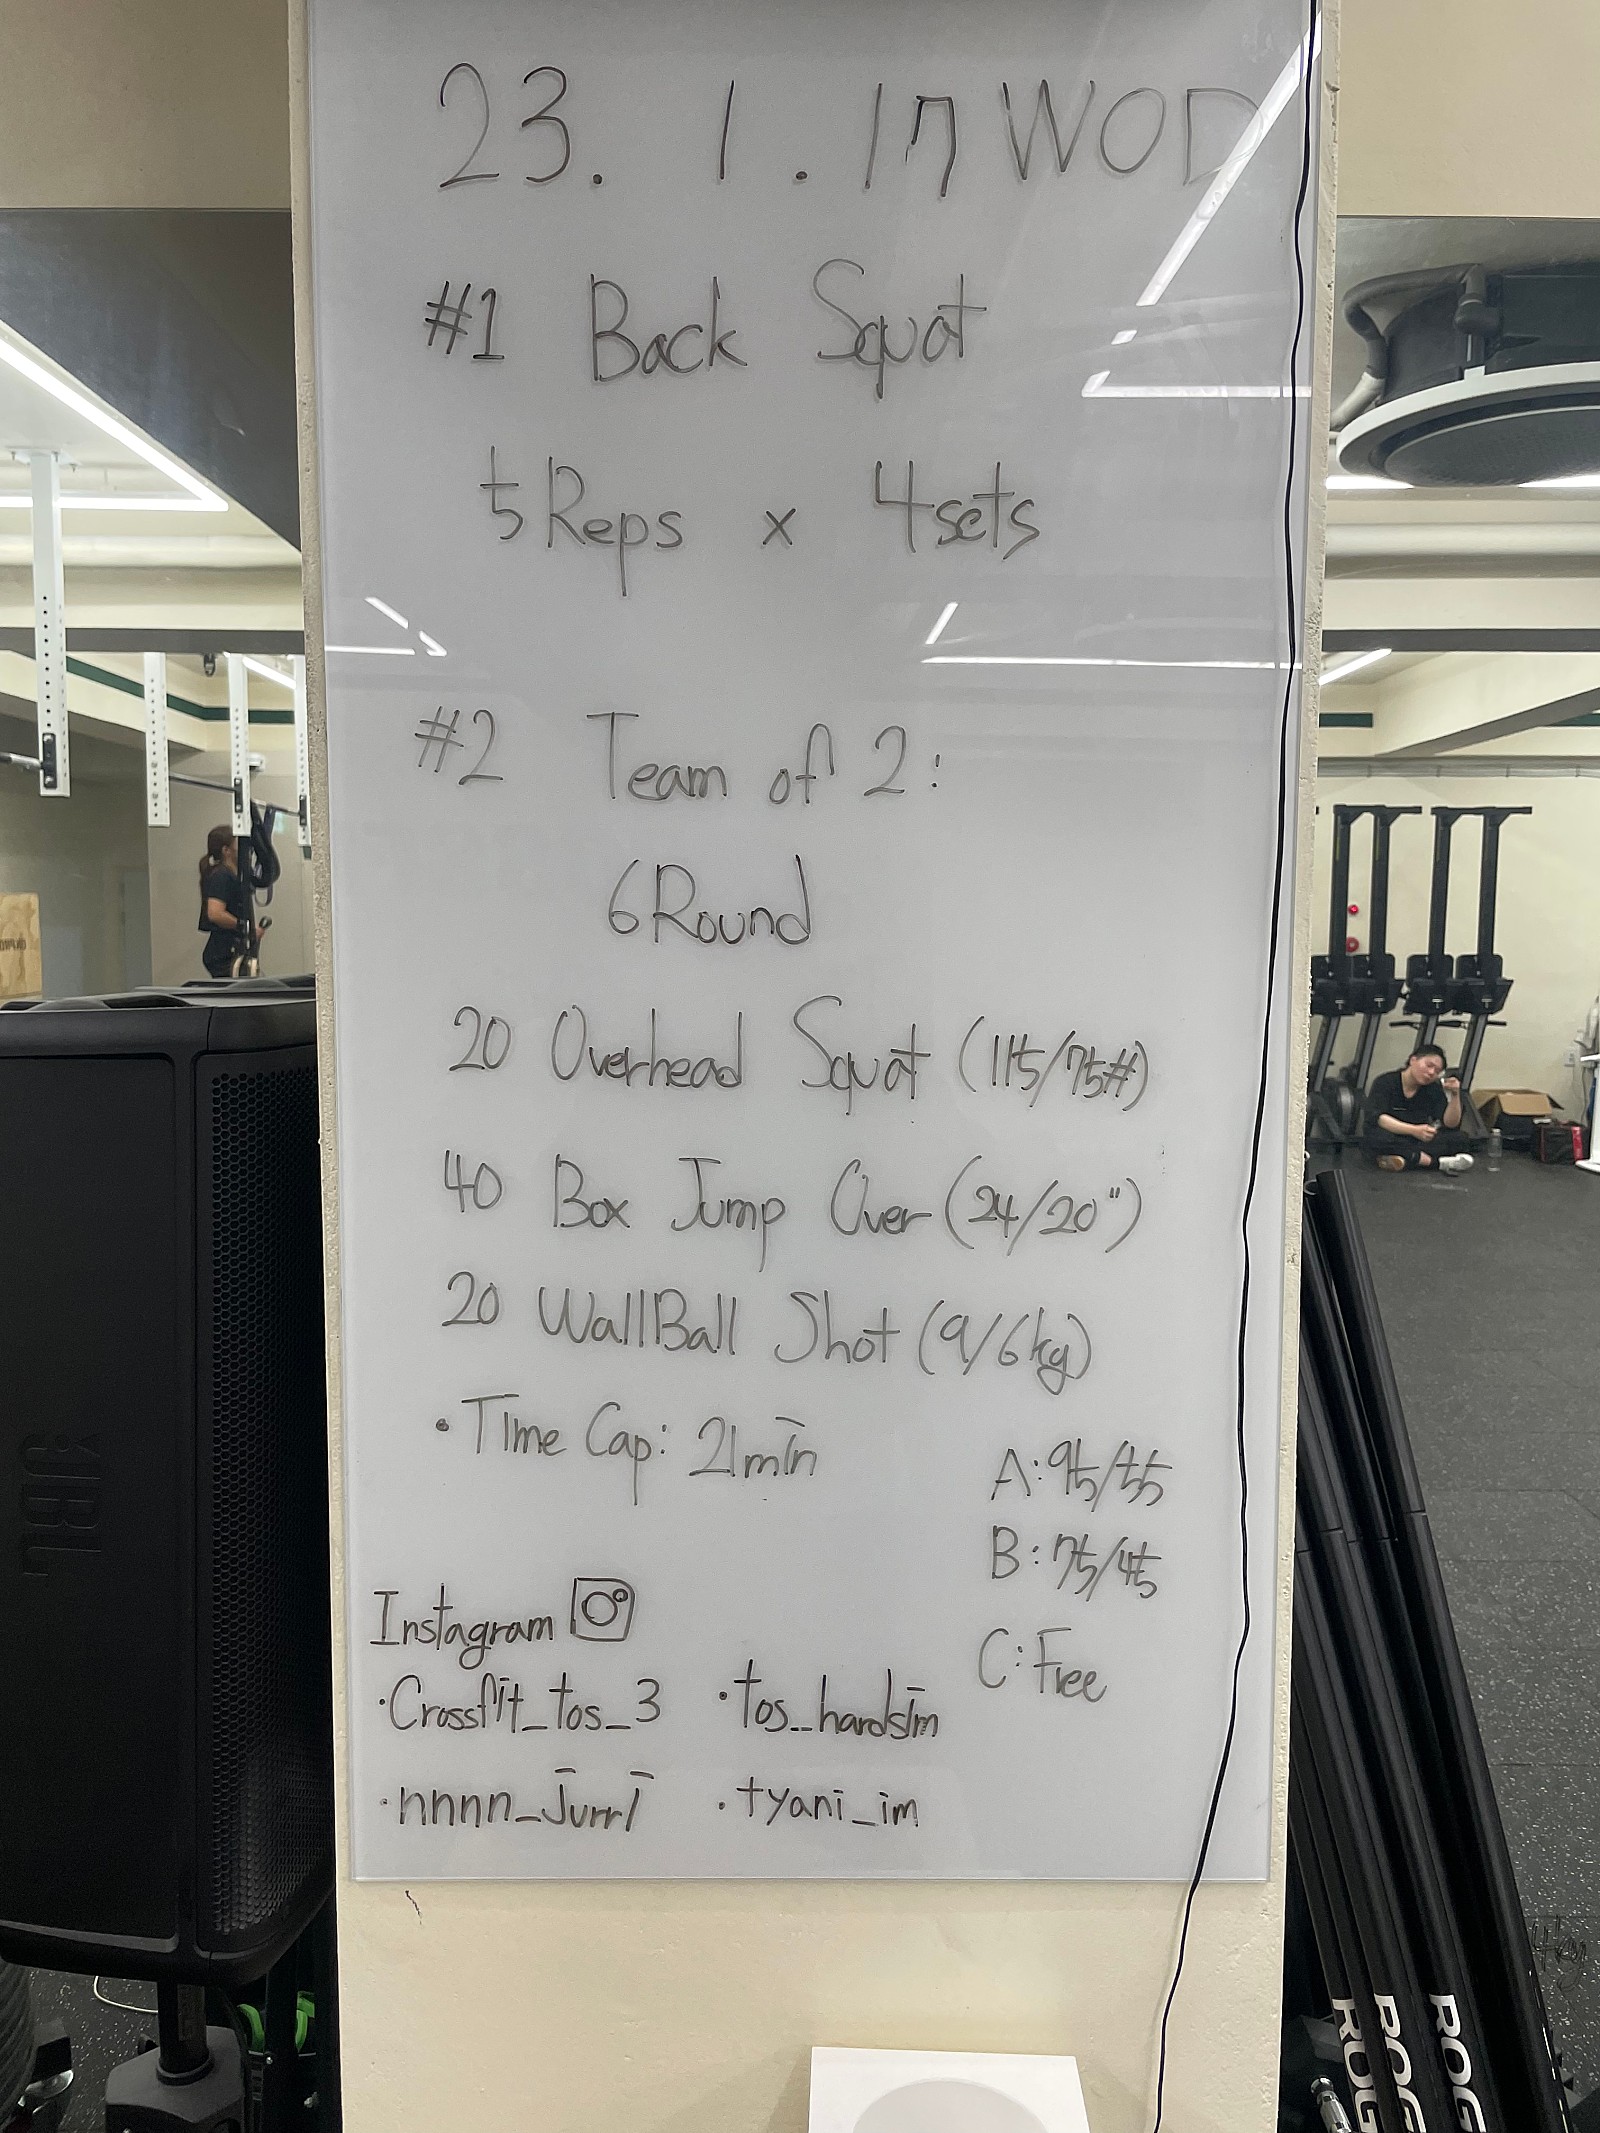 23. 1. 17 WOD
#1 Back Squat
5 Reps x 4sets
#2 Team of 2:
6 Round
20 Overhead Squat (115/75#)
40 Box Jump Over (24/20")
20 WallBall Shot (9/6kg)
• Time Cap: 21min
A: 95/55
B: 75/45
C: Free
Instagram
• Crossfit_tos_3 • tos__hardsim
• nnnn_jurri • tyani_im
JBL
ROG
ROG
ROG